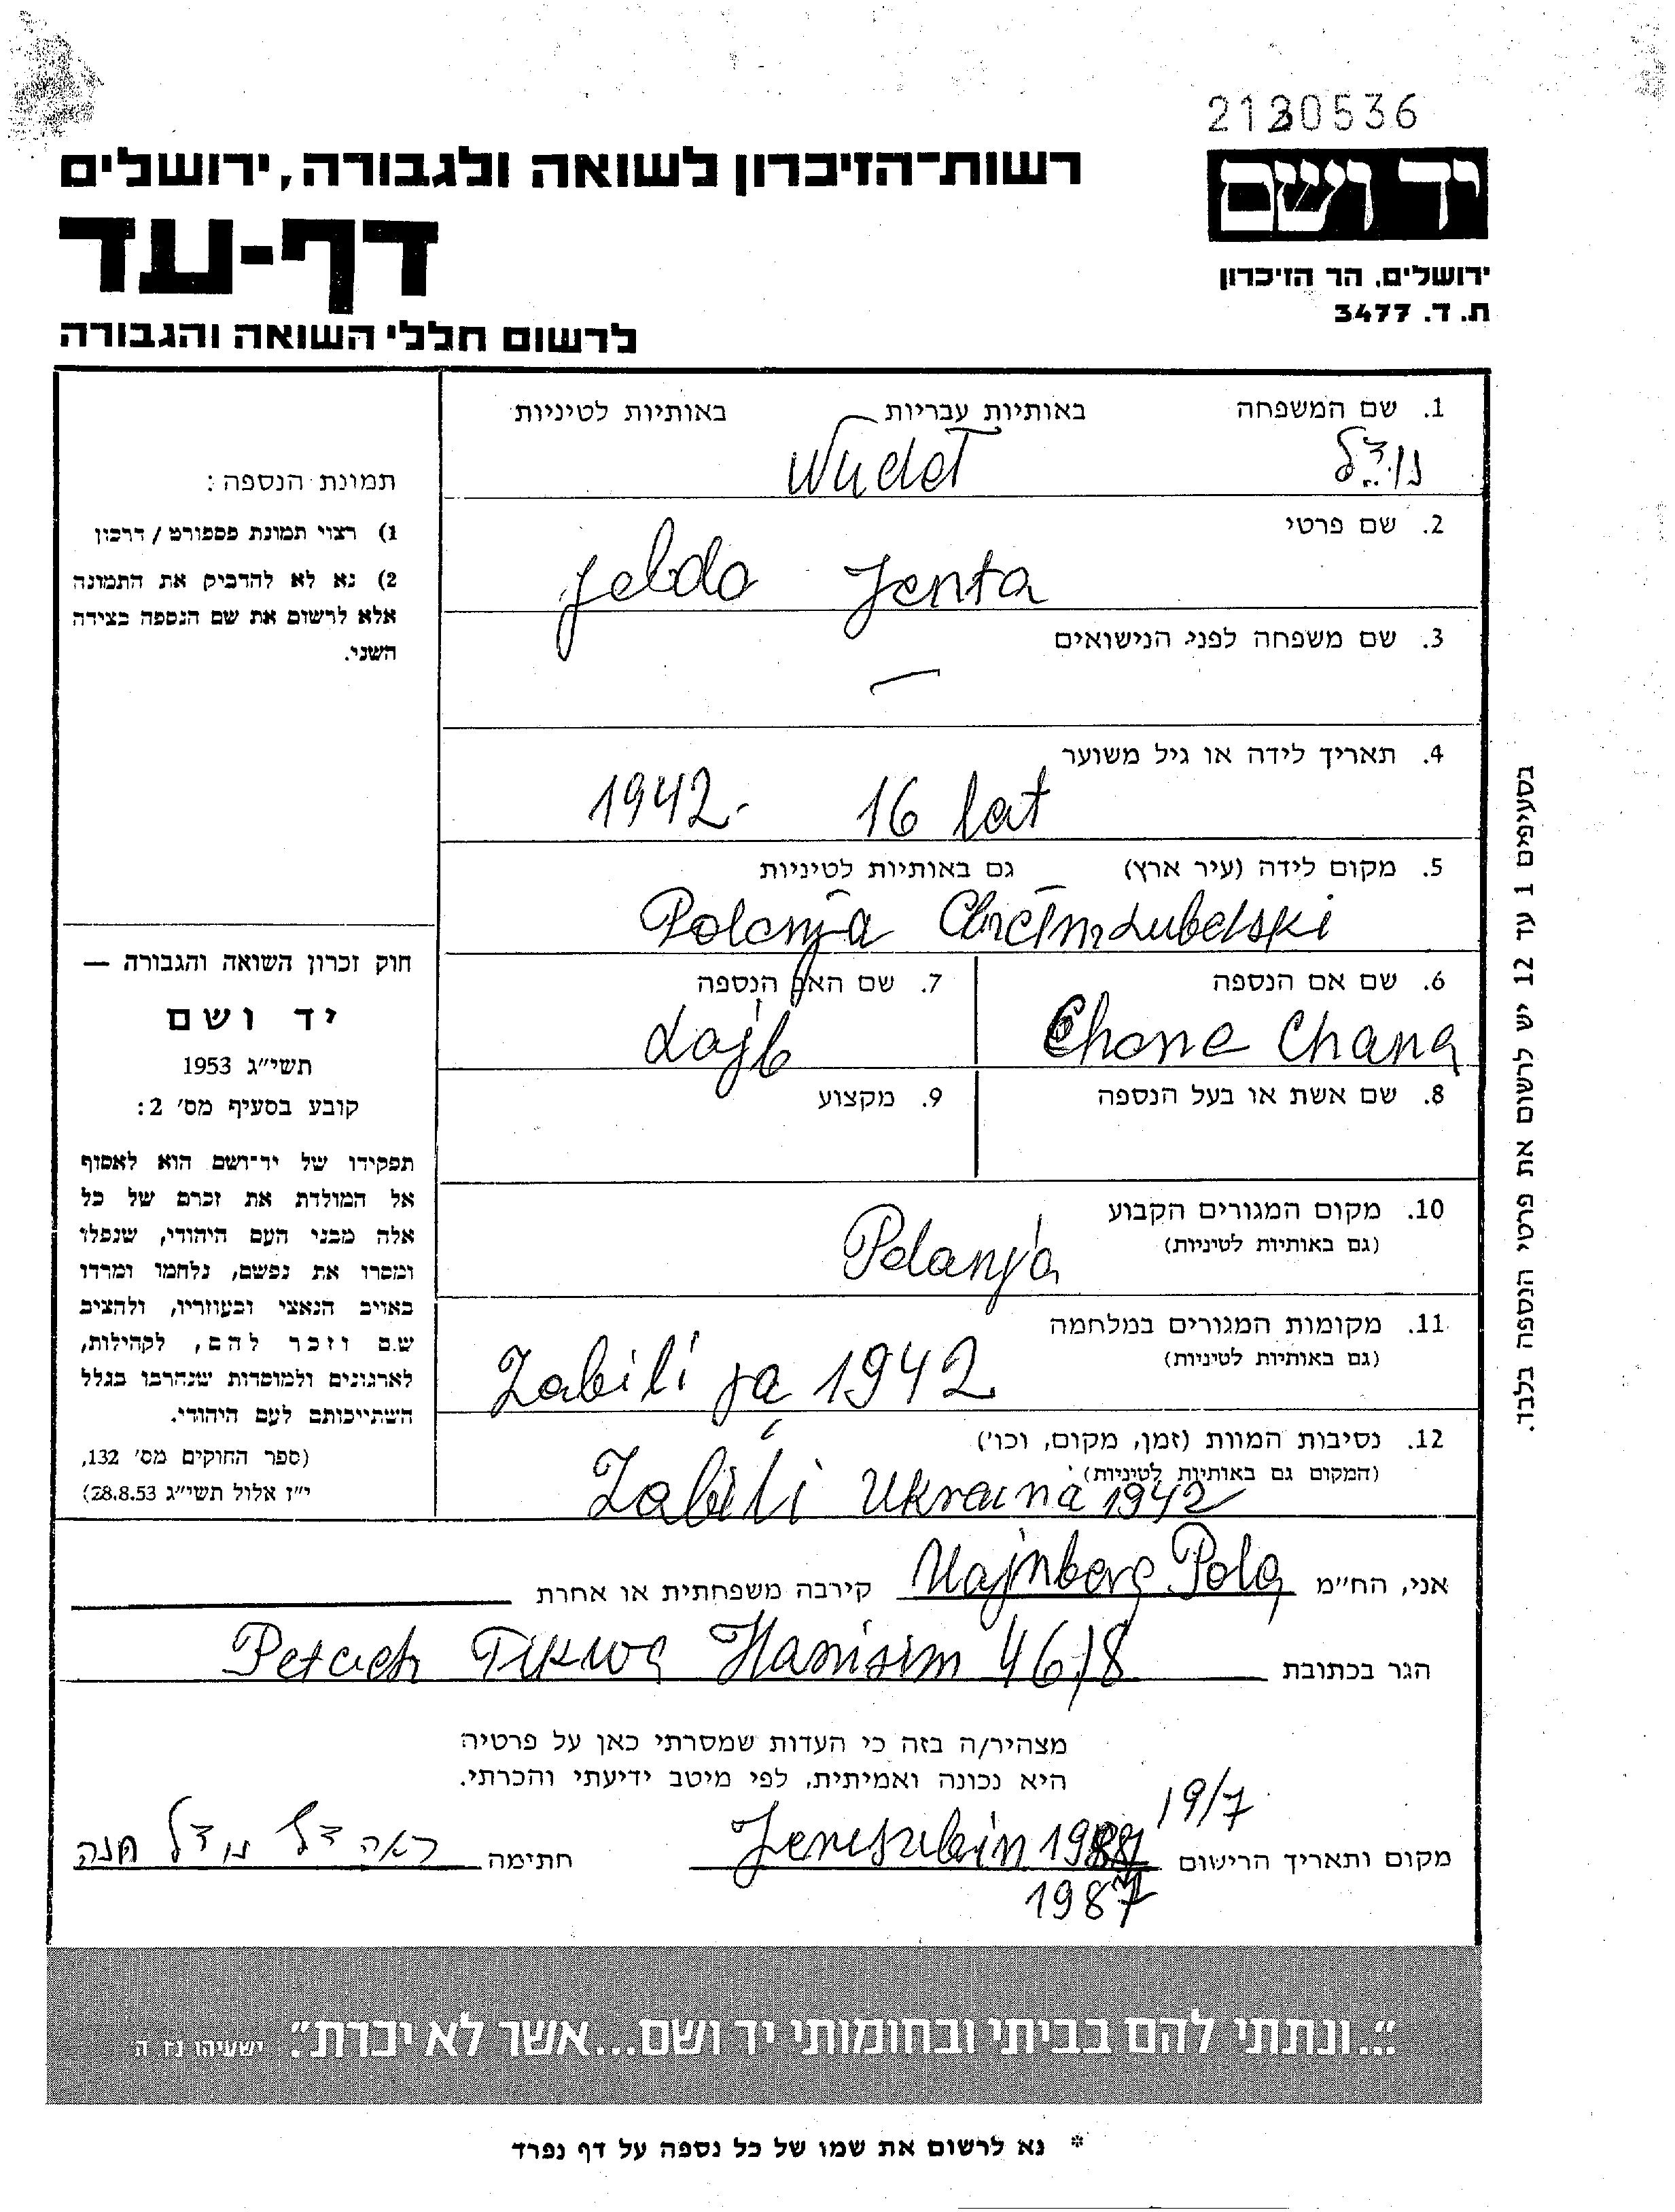 2130536
יד ושם
רשות־הזיכרון לשואה ולגבורה, ירושלים
דף-עד
ירושלים, הר הזיכרון
ת. ד. 3477
לרשום חללי השואה והגבורה
1. שם המשפחה באותיות עבריות באותיות לטיניות
Nudel
2. שם פרטי
Jenta
3. שם משפחה לפני הנישואים
—
4. תאריך לידה או גיל משוער
1942 16 lat
5. מקום לידה (עיר ארץ) גם באותיות לטיניות
Polanja Chelm Lubelski
6. שם אם הנספה
Chana
7. שם האב הנספה
Lajb
8. שם אשת או בעל הנספה
9. מקצוע
10. מקום המגורים הקבוע
(גם באותיות לטיניות)
Polanja
11. מקומות המגורים במלחמה
(גם באותיות לטיניות)
Zabili ja 1942
12. נסיבות המוות (זמן, מקום, וכו')
(המקום גם באותיות לטיניות)
Zabili Ukraina 1942
תמונת הנספה:
1) רצוי תמונת פספורט / דרכון
2) נא לא להדביק את התמונה
אלא לרשום את שם הנספה בצידה
השני.
חוק זכרון השואה והגבורה —
יד ושם
תשי״ג 1953
קובע בסעיף מס׳ 2:
תפקידו של יד־ושם הוא לאסוף
אל המולדת את זכרם של כל
אלה מבני העם היהודי, שנפלו
ומסרו את נפשם, נלחמו ומרדו
באויב הנאצי ובעוזריו, ולהציב
שם וזכר להם, לקהילות,
לארגונים ולמוסדות שנהרבו בגלל
השתייכותם לעם היהודי.
(ספר החוקים מס׳ 132,
י״ז אלול תשי״ג 28.8.53)
בסעיפים 1 עד 12 יש לרשום את פרטי הנספה בלבד.
אני, הח״מ Majnberg Pola קירבה משפחתית או אחרת
הגר בכתובת Petach Tikwa Hanisim 46/8
מצהיר/ה בזה כי העדות שמסרתי כאן על פרטיה
היא נכונה ואמיתית, לפי מיטב ידיעתי והכרתי.
19/7
מקום ותאריך הרישום חתימה
1987
"...ונתתי להם בביתי ובחומותי יד ושם...אשר לא יכרת". ישעיהו נו ה
* נא לרשום את שמו של כל נספה על דף נפרד